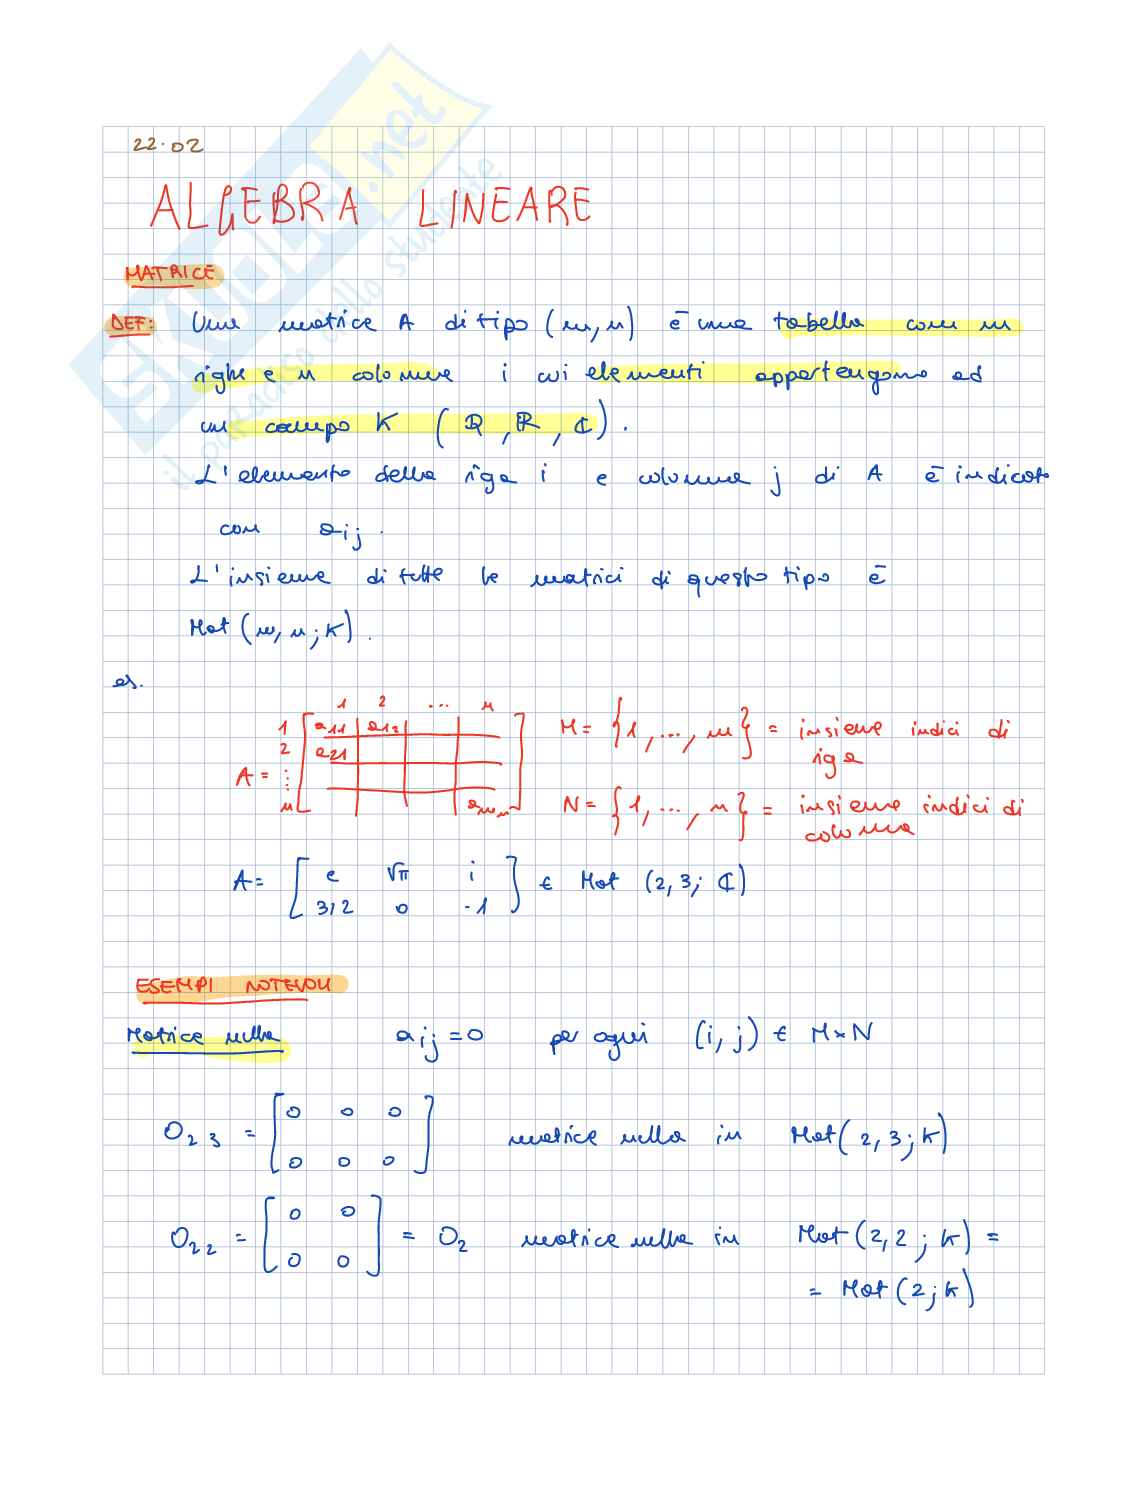 22.02
ALGEBRA LINEARE
MATRICE
DEF: Una matrice A di tipo (m,n) è una tabella con m
righe e n colonne i cui elementi appartengono ad
un campo K (ℚ, ℝ, ℂ).
L'elemento della riga i e colonna j di A è indicato
con aij.
L'insieme di tutte le matrici di questo tipo è
Mat(m,n;K).
es.
1 2 ... n
1 a11 a12
2 a21
A = ⋮
m amn
M = {1, ..., m} = insieme indici di
riga
N = {1, ..., n} = insieme indici di
colonna
A = [ e √π i
3/2 0 -1 ] ∈ Mat (2,3; ℂ)
ESEMPI NOTEVOLI
Matrice nulla aij = 0 per ogni (i,j) ∈ M×N
O2 3 = [ 0 0 0
0 0 0 ] matrice nulla in Mat(2,3;K)
O2 2 = [ 0 0
0 0 ] = O2 matrice nulla in Mat(2,2;K) =
= Mat(2;K)
SKUOLA.net
il paradiso dello studente